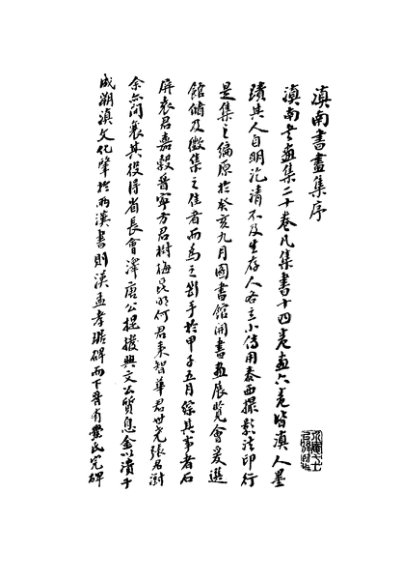 滇南書畫集序
滇南書畫集二十卷凡集書十四卷畫六卷皆滇人墨
蹟其人自明迄清不及生存人各立小傳用泰西攝影法印行
是集之編原於癸亥九月圖書館開書畫展覽會爰選
館儲及徵集之佳者而為之斷手於甲子五月綜其事者石
屏袁君嘉穀晉寧方君樹梅昆明何君秉智華君世堯張君澍
余亦間襄其役得省長會澤唐公提撥興文公質息金以濟于
成溯滇文化肇於兩漢書則漢孟孝琚碑而下晉有爨氏完碑